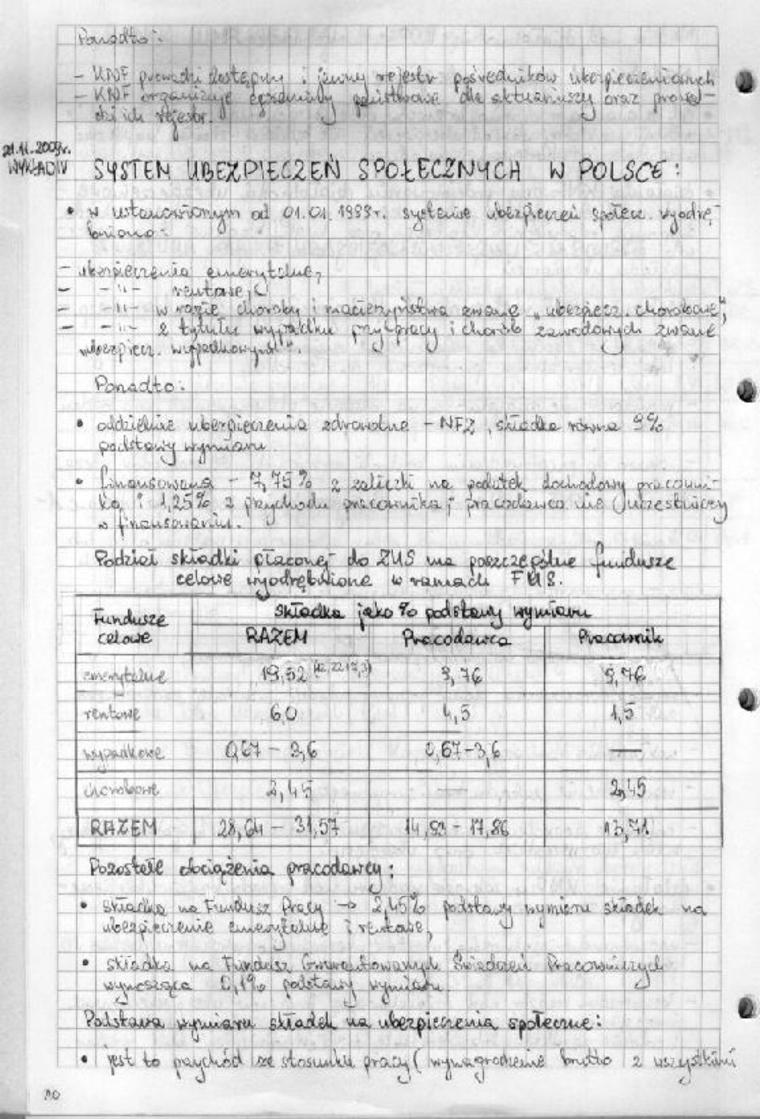 Ponadto:
- KNF prowadzi dostępny i jawny rejestr pośredników ubezpieczeniowych
- KNF organizuje egzaminy państwowe dla aktuariuszy oraz prowa-
dzi ich rejestr.
21.11.2009r.
WYKŁAD IV
SYSTEM UBEZPIECZEŃ SPOŁECZNYCH W POLSCE:
• w ustanowionym od 01.01.1999r. systemie ubezpieczeń społecz. wyodrę-
bniono:
- ubezpieczenia emerytalne,
- -"- rentowe,
- -"- w razie choroby i macierzyństwa zwane „ubezpiecz. chorobowe",
- -"- z tytułu wypadku przy pracy i chorób zawodowych zwane
„ubezpiecz. wypadkowym".
Ponadto:
• oddzielnie ubezpieczenia zdrowotne - NFZ, składka równa 9%
podstawy wymiaru
• finansowana - 7,75% z zaliczki na podatek dochodowy pracowni-
ka i 1,25% z przychodu pracownika; pracodawca nie uczestniczy
w finansowaniu.
Podział składki płaconej do ZUS na poszczególne fundusze
celowe wyodrębnione w ramach FUS.
Fundusze celowe składka jako % podstawy wymiaru
RAZEM Pracodawca Pracownik
emerytalne 19,52 (12,22 i 7,3) 9,76 9,76
rentowe 6,0 4,5 1,5
wypadkowe 0,67 - 3,6 0,67-3,6 —
chorobowe 2,45 2,45
RAZEM 28,64 - 31,57 14,93 - 17,86 13,71
Pozostałe obciążenia pracodawcy:
• składka na Fundusz Pracy → 2,45% podstawy wymiaru składek na
ubezpieczenie emerytalne i rentowe,
• składka na Fundusz Gwarantowanych Świadczeń Pracowniczych
wynosząca 0,1% podstawy wymiaru
Podstawa wymiaru składek na ubezpieczenia społeczne:
• jest to przychód ze stosunku pracy (wynagrodzenie brutto z wszystkimi
10